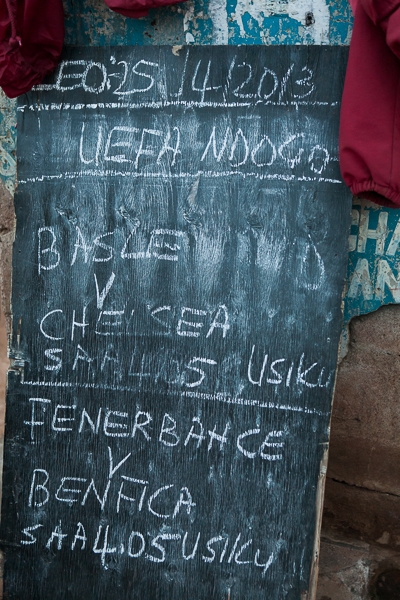 LEO:25/4/2013
UEFA NDOGO
BASLE
V
CHELSEA
SAA4.05 USIKU
FENERBAHCE
V
BENFICA
SAA4.05 USIKU